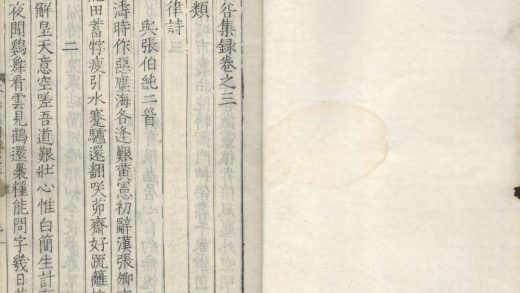 谷集録卷之三
類
律詩
與張伯純二首
濤時作惡塵海各逢艱黃憲初辭漢張卿
田蓄牸瘦引水蹇驢還翻咲茆齋好疏籬
二
解皇天意空嗟吾道艱壯心惟白簡生計
夜聞鷄舞看雲見鶴還裹糧能問字幾日